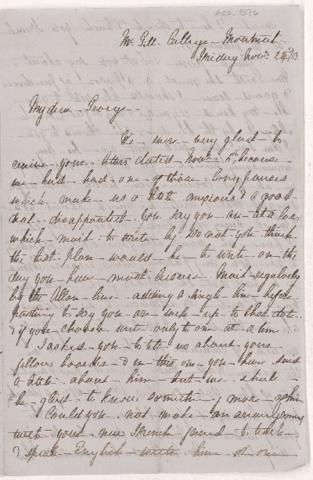 ACC. 576
McGill College - Montreal
Friday Nov. 28/73
My dear George
We were very glad to
receive your letter dated Nov. 5, because
we had had one of those long pauses
which make us a little anxious & a good
deal disappointed. You say you are at a loss
which mail to write by. Do not you think
the best plan would be to write on the
day you have most leisure. Mail regularly
by the Allan line - adding a single line before
posting to say you are well up to that date.
& if you choose write only to one at a time
I asked you to tell us about your
fellow boarders & in this one you have said
a little about him but we shall
be glad to know something more of him
Could you not make an arrangement
with your nice French friend to talk
& speak English with him at one